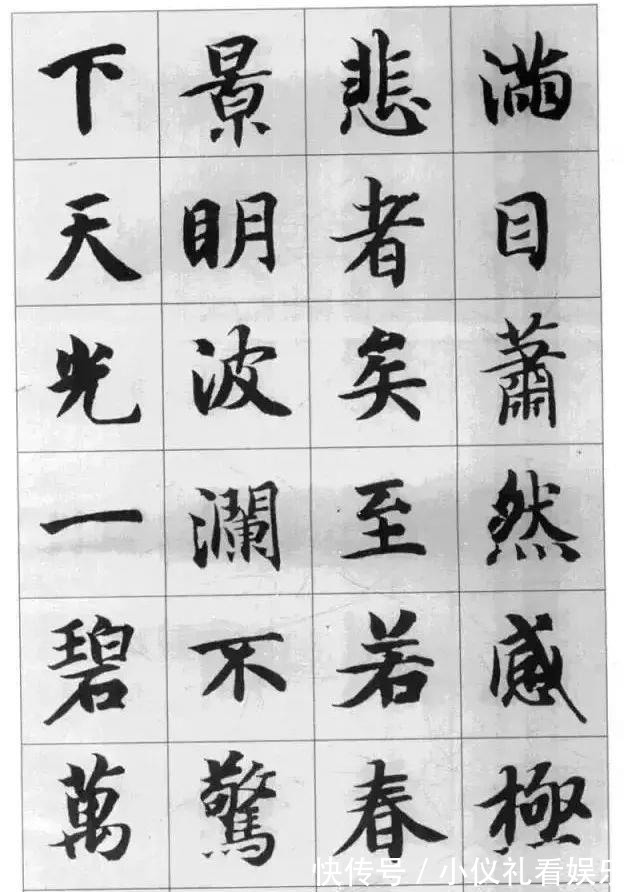 满目蕭然感極
悲者矣至若春
景明波瀾不驚
下天光一碧萬
快传号/小仪礼看娱乐